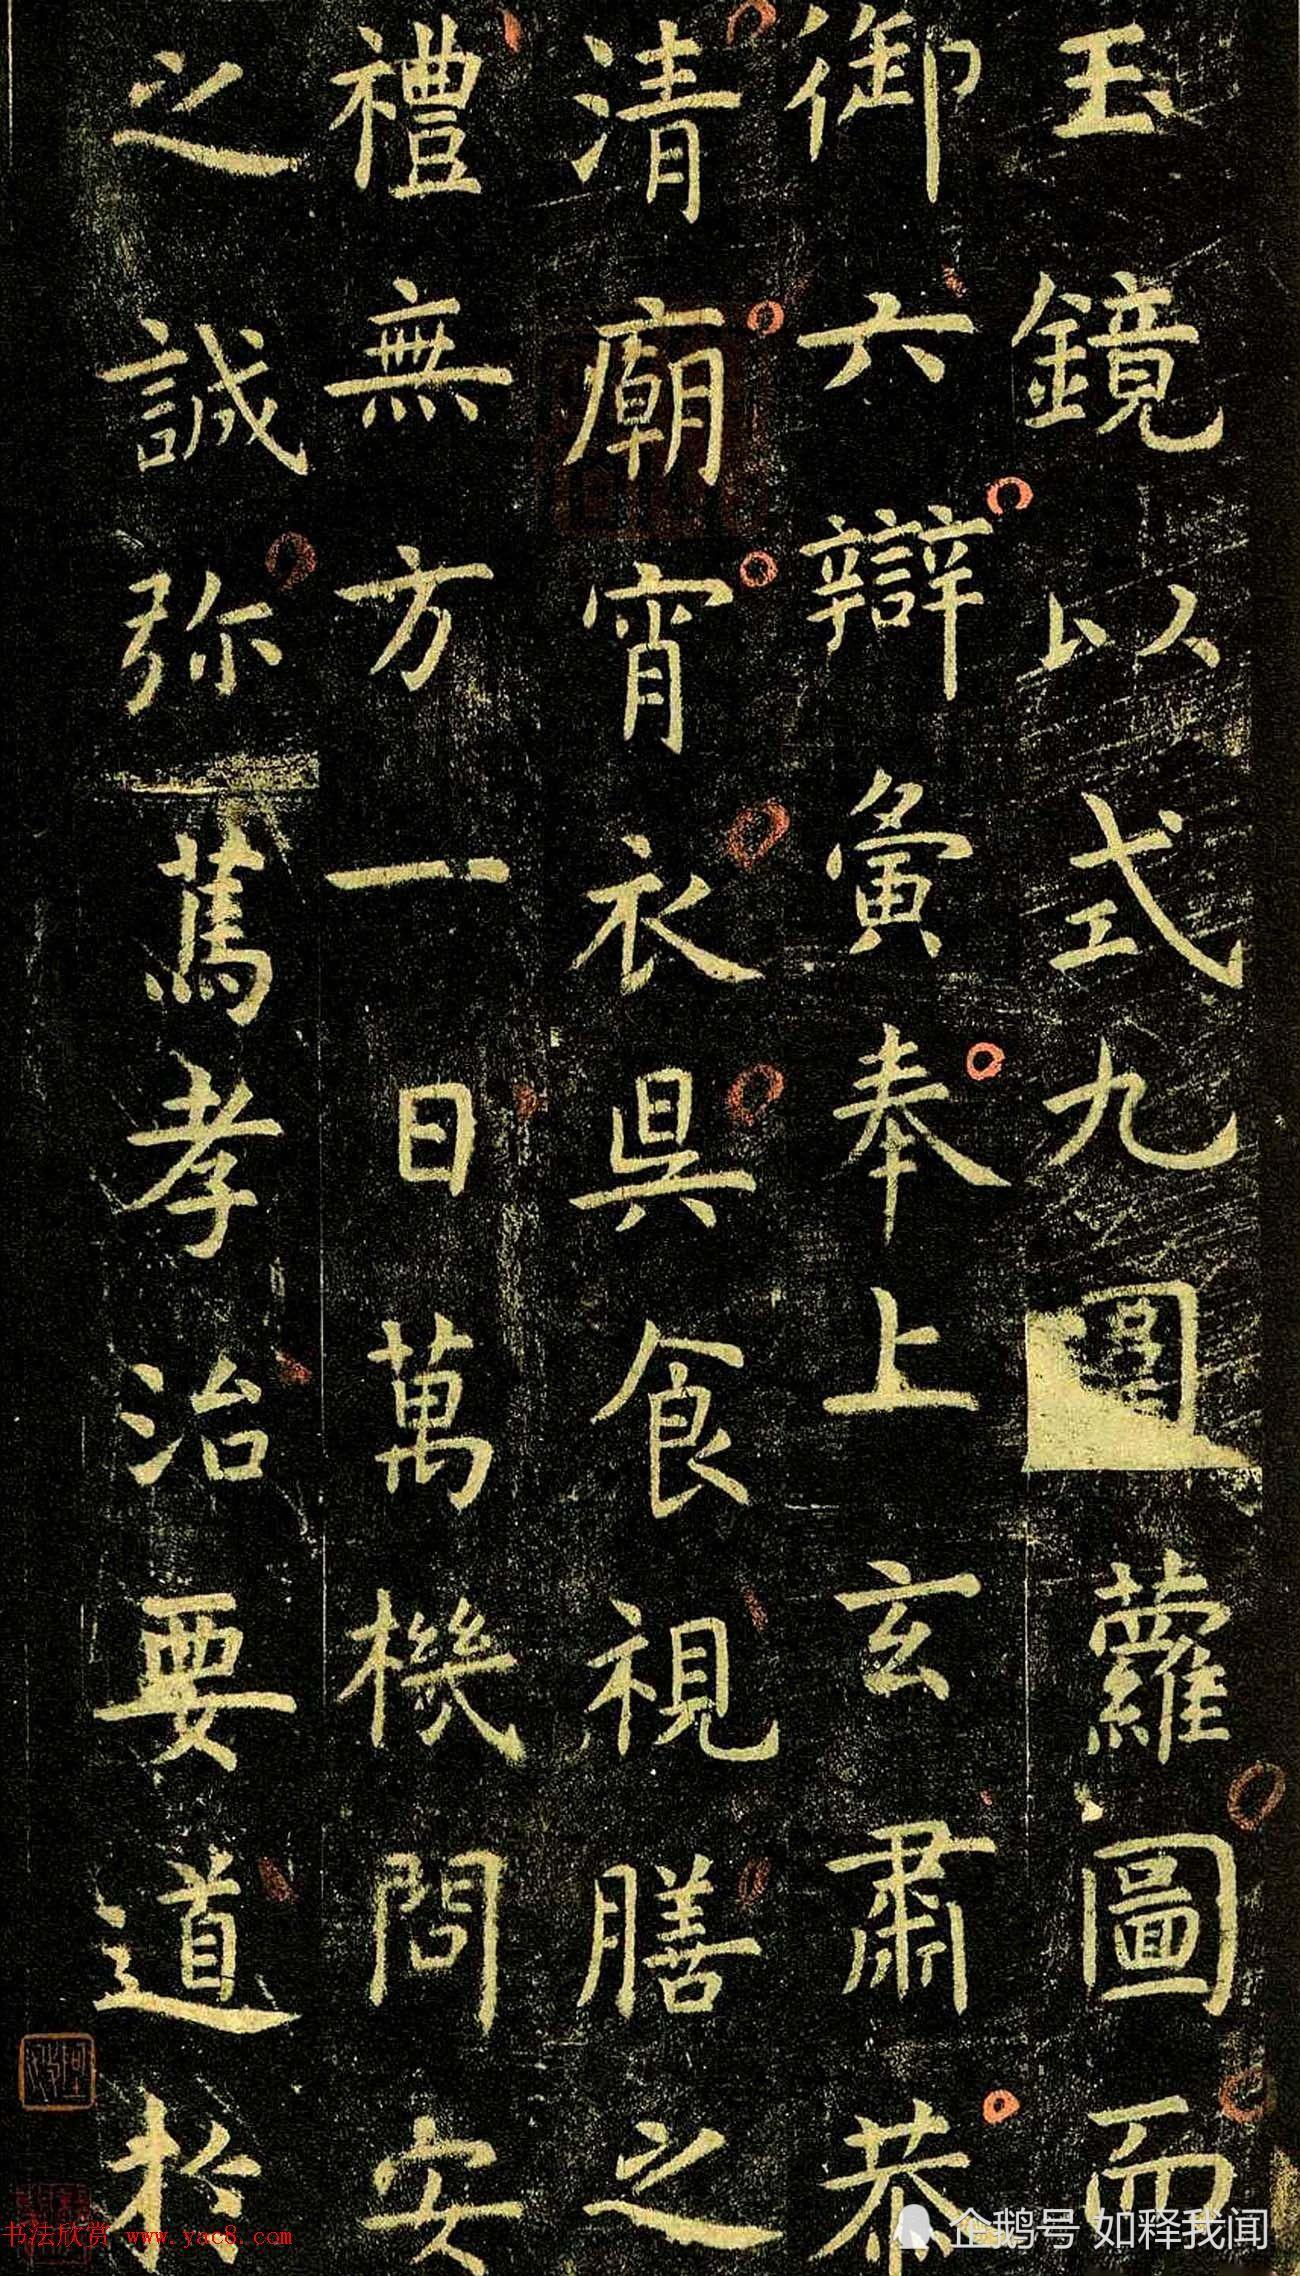 玉鏡以式九圍蘿圖而
御六辯彙奉上玄肅恭
清廟宵衣昃食視膳之
禮無方一日萬機問安
之誠弥篤孝治要道於
书法欣赏 www.yac8.com
企鹅号 如释我闻